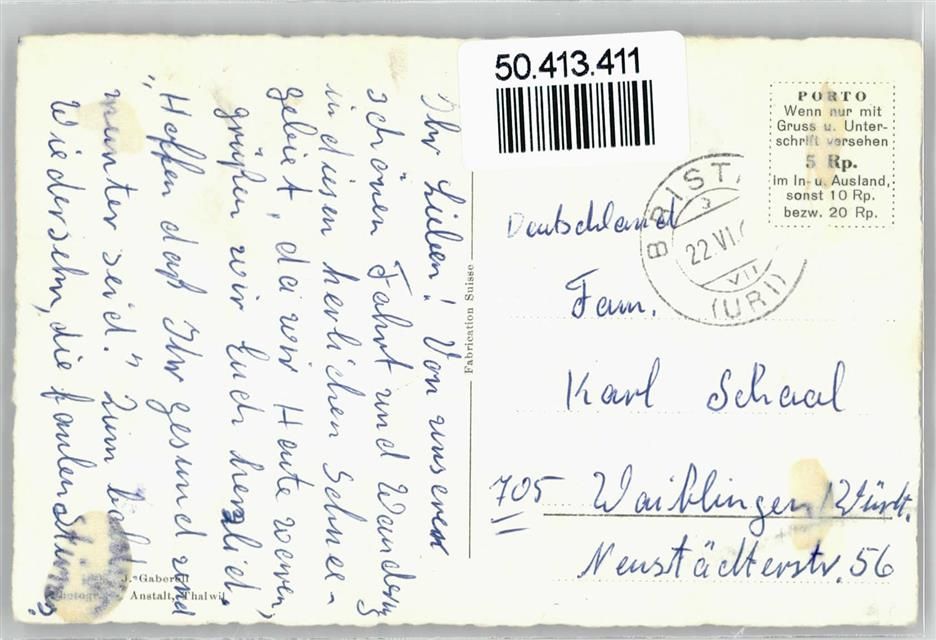 50.413.411
PORTO
Wenn nur mit
Gruss u. Unter-
schrift versehen
5 Rp.
im In- u. Ausland,
sonst 10 Rp.
bezw. 20 Rp.
BRISTE
22.VI.
VII
(URI)
Ihr Lieben! Von unserer
schönen Fahrt und Wanderg
in diesen herlichen Schnee-
gebiet, da wir Heute waren,
grüßen wir Euch herzlich.
"Hoffen daß Ihr gesund und
munter seid." Zum
Wiedersehn, die
Deutschland
Fam.
Karl Schaal
705 Waiblingen/Württ.
Neustädterstr. 56
Fabrication Suisse
J. Gaberell
Anstalt, Thalwil